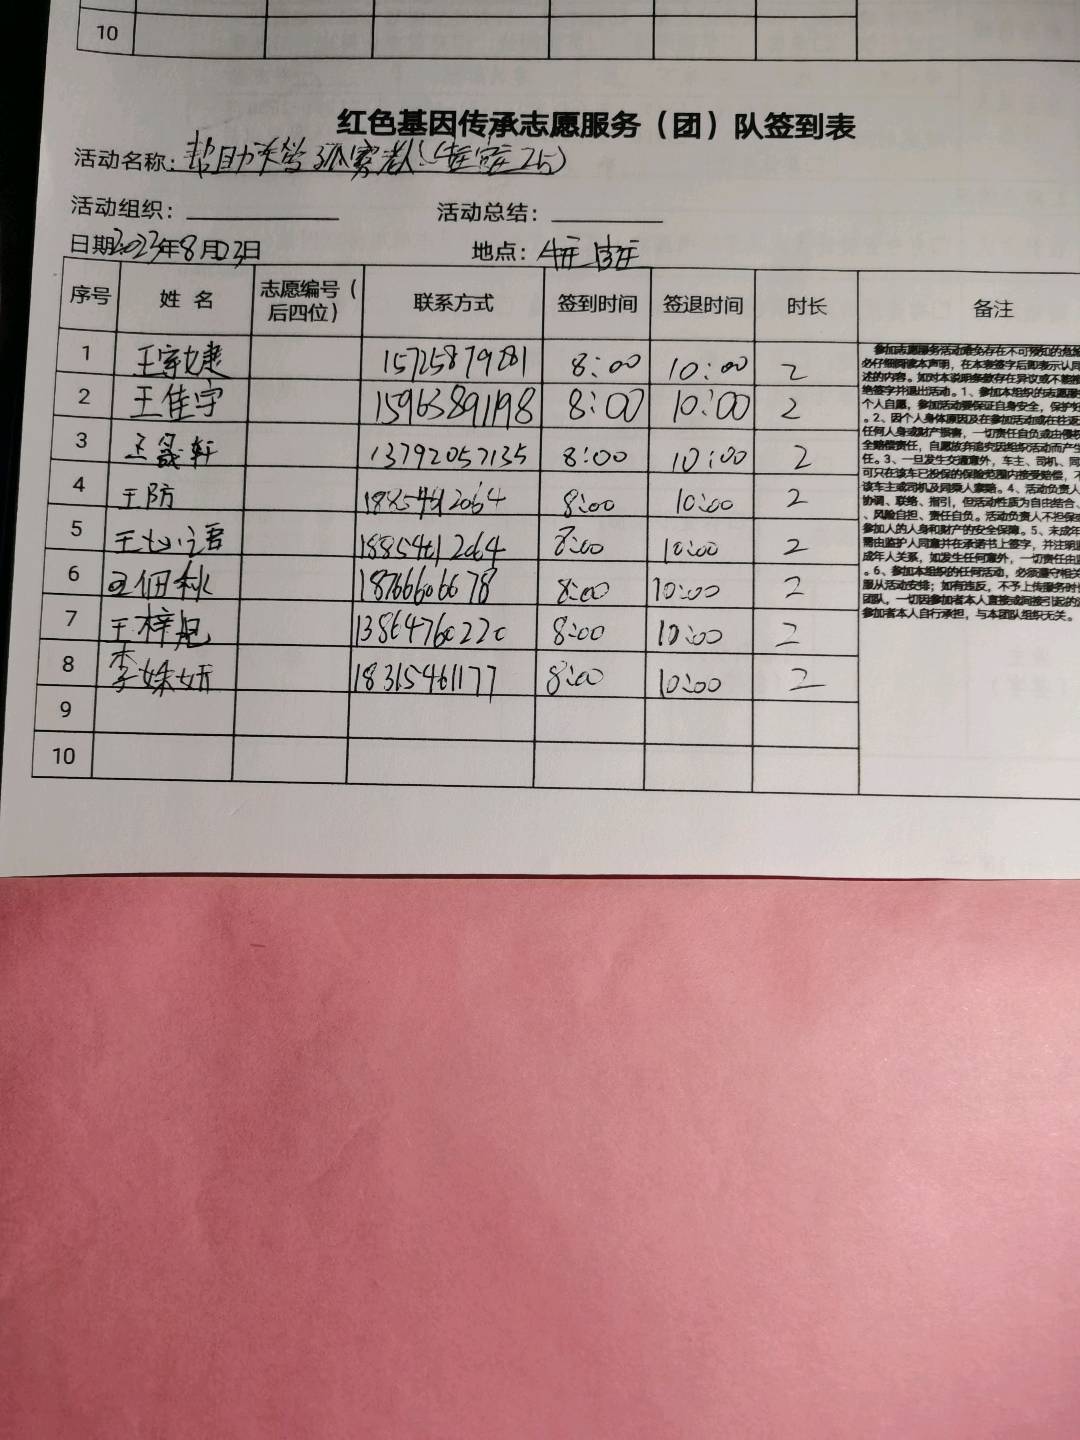 10
红色基因传承志愿服务（团）队签到表
活动名称：帮助 孤寡老人
活动组织：
活动总结：
日期2023年8月03日
地点：
序号 姓 名 志愿编号（后四位） 联系方式 签到时间 签退时间 时长 备注
1 王家婕 15725879281 8:00 10:00 2
2 王佳宇 15963891198 8:00 10:00 2
3 王晟轩 13792057135 8:00 10:00 2
4 王防 18854612064 8:00 10:00 2
5 王 18854612064 8:00 10:00 2
6 王佃秋 18766606678 8:00 10:00 2
7 王梓 13864760220 8:00 10:00 2
8 李姝妍 18315461177 8:00 10:00 2
9
10
参加志愿服务活动难免存在不可预知的危险
必仔细阅读本声明，在本表签字后即表示认同
述的内容。如对本说明条款存在异议或不能接
绝签字并退出活动。1、参加本组织的志愿服
个人自愿，参加活动要保证自身安全，保护好
。2、因个人身体原因及在参加活动或在往返
任何人身或财产损害，一切责任自负或由侵权
全赔偿责任，自愿放弃追究因组织活动而产生
任。3、一旦发生交通意外，车主、司机、同
可只在该车已投保的保险范围内接受赔偿，不
该车主或司机及同乘人索赔。4、活动负责人
协调、联络、指引，但活动性质为自由结合、
、风险自担、责任自负。活动负责人不担保
参加人的人身和财产的安全保障。5、未成年
需由监护人同意并在承诺书上签字，并注明
成年人关系，如发生任何意外，一切责任由
。6、参加本组织的任何活动，必须遵守相关
服从活动安排；如有违反，不予上传服务时
团队，一切因参加者本人直接或间接引起的
参加者本人自行承担，与本团队组织无关。